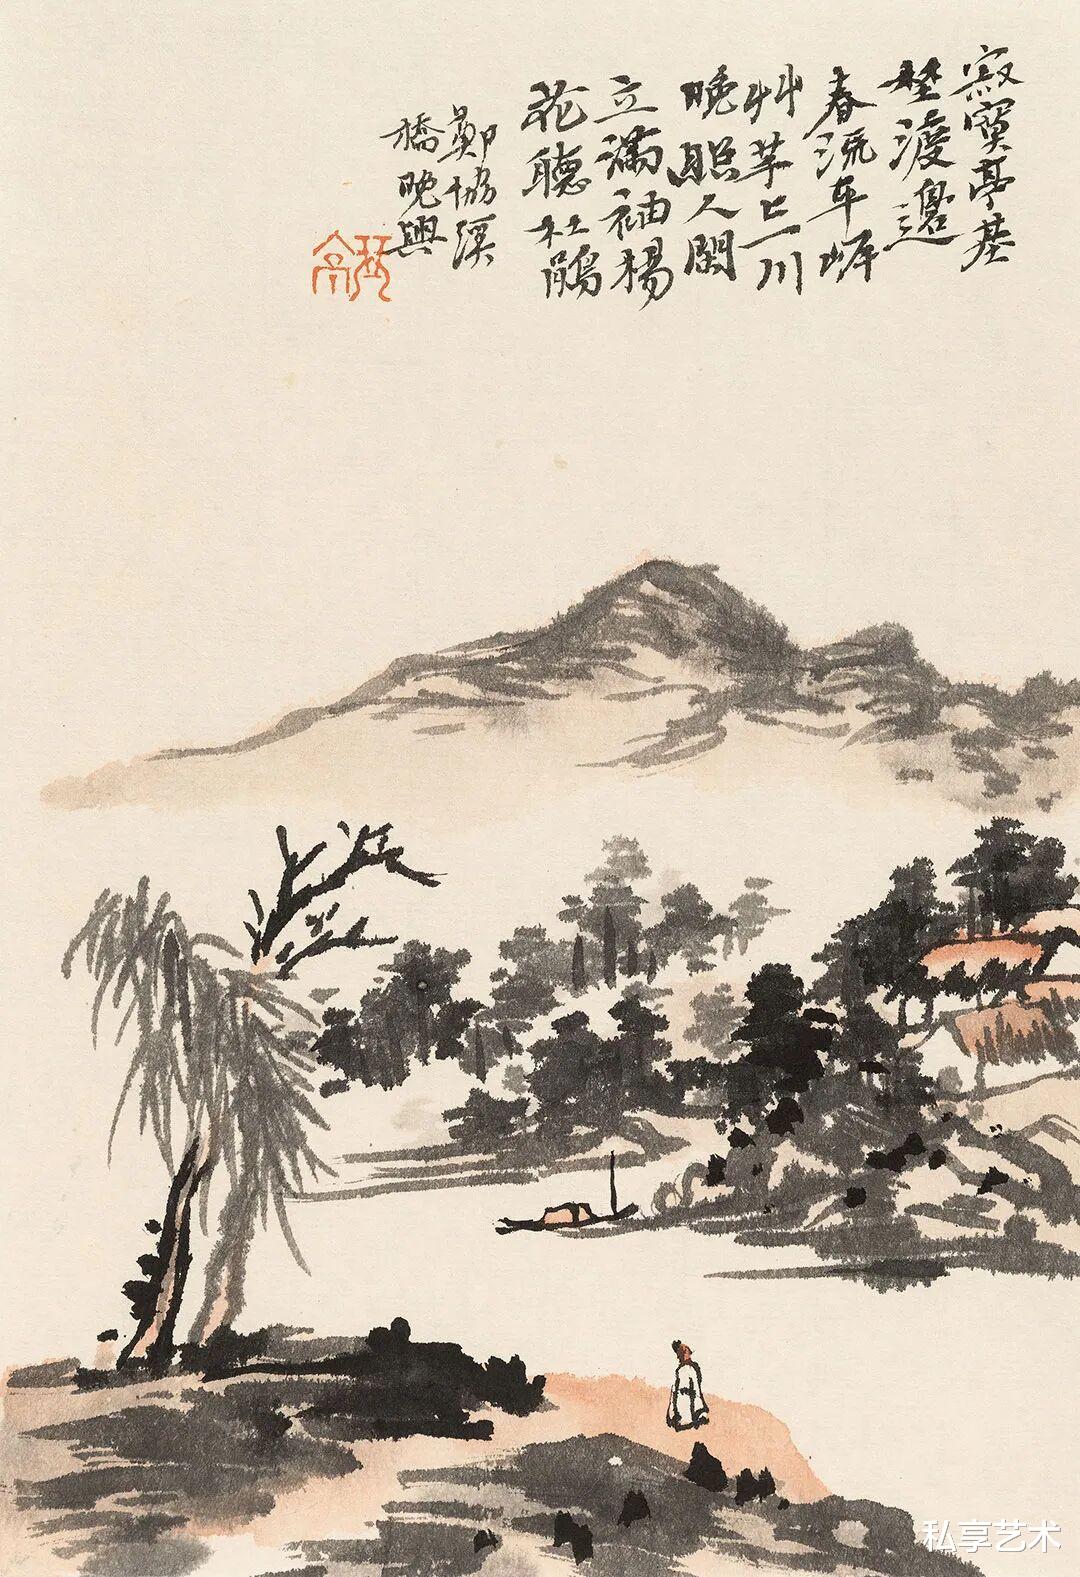 寂寞亭基
埜渡邊
春流平岸
艸芊〻一川
晚照人閒
立滿袖楊
花聽杜鵑
鄭協溪
橋晚興
私享艺术